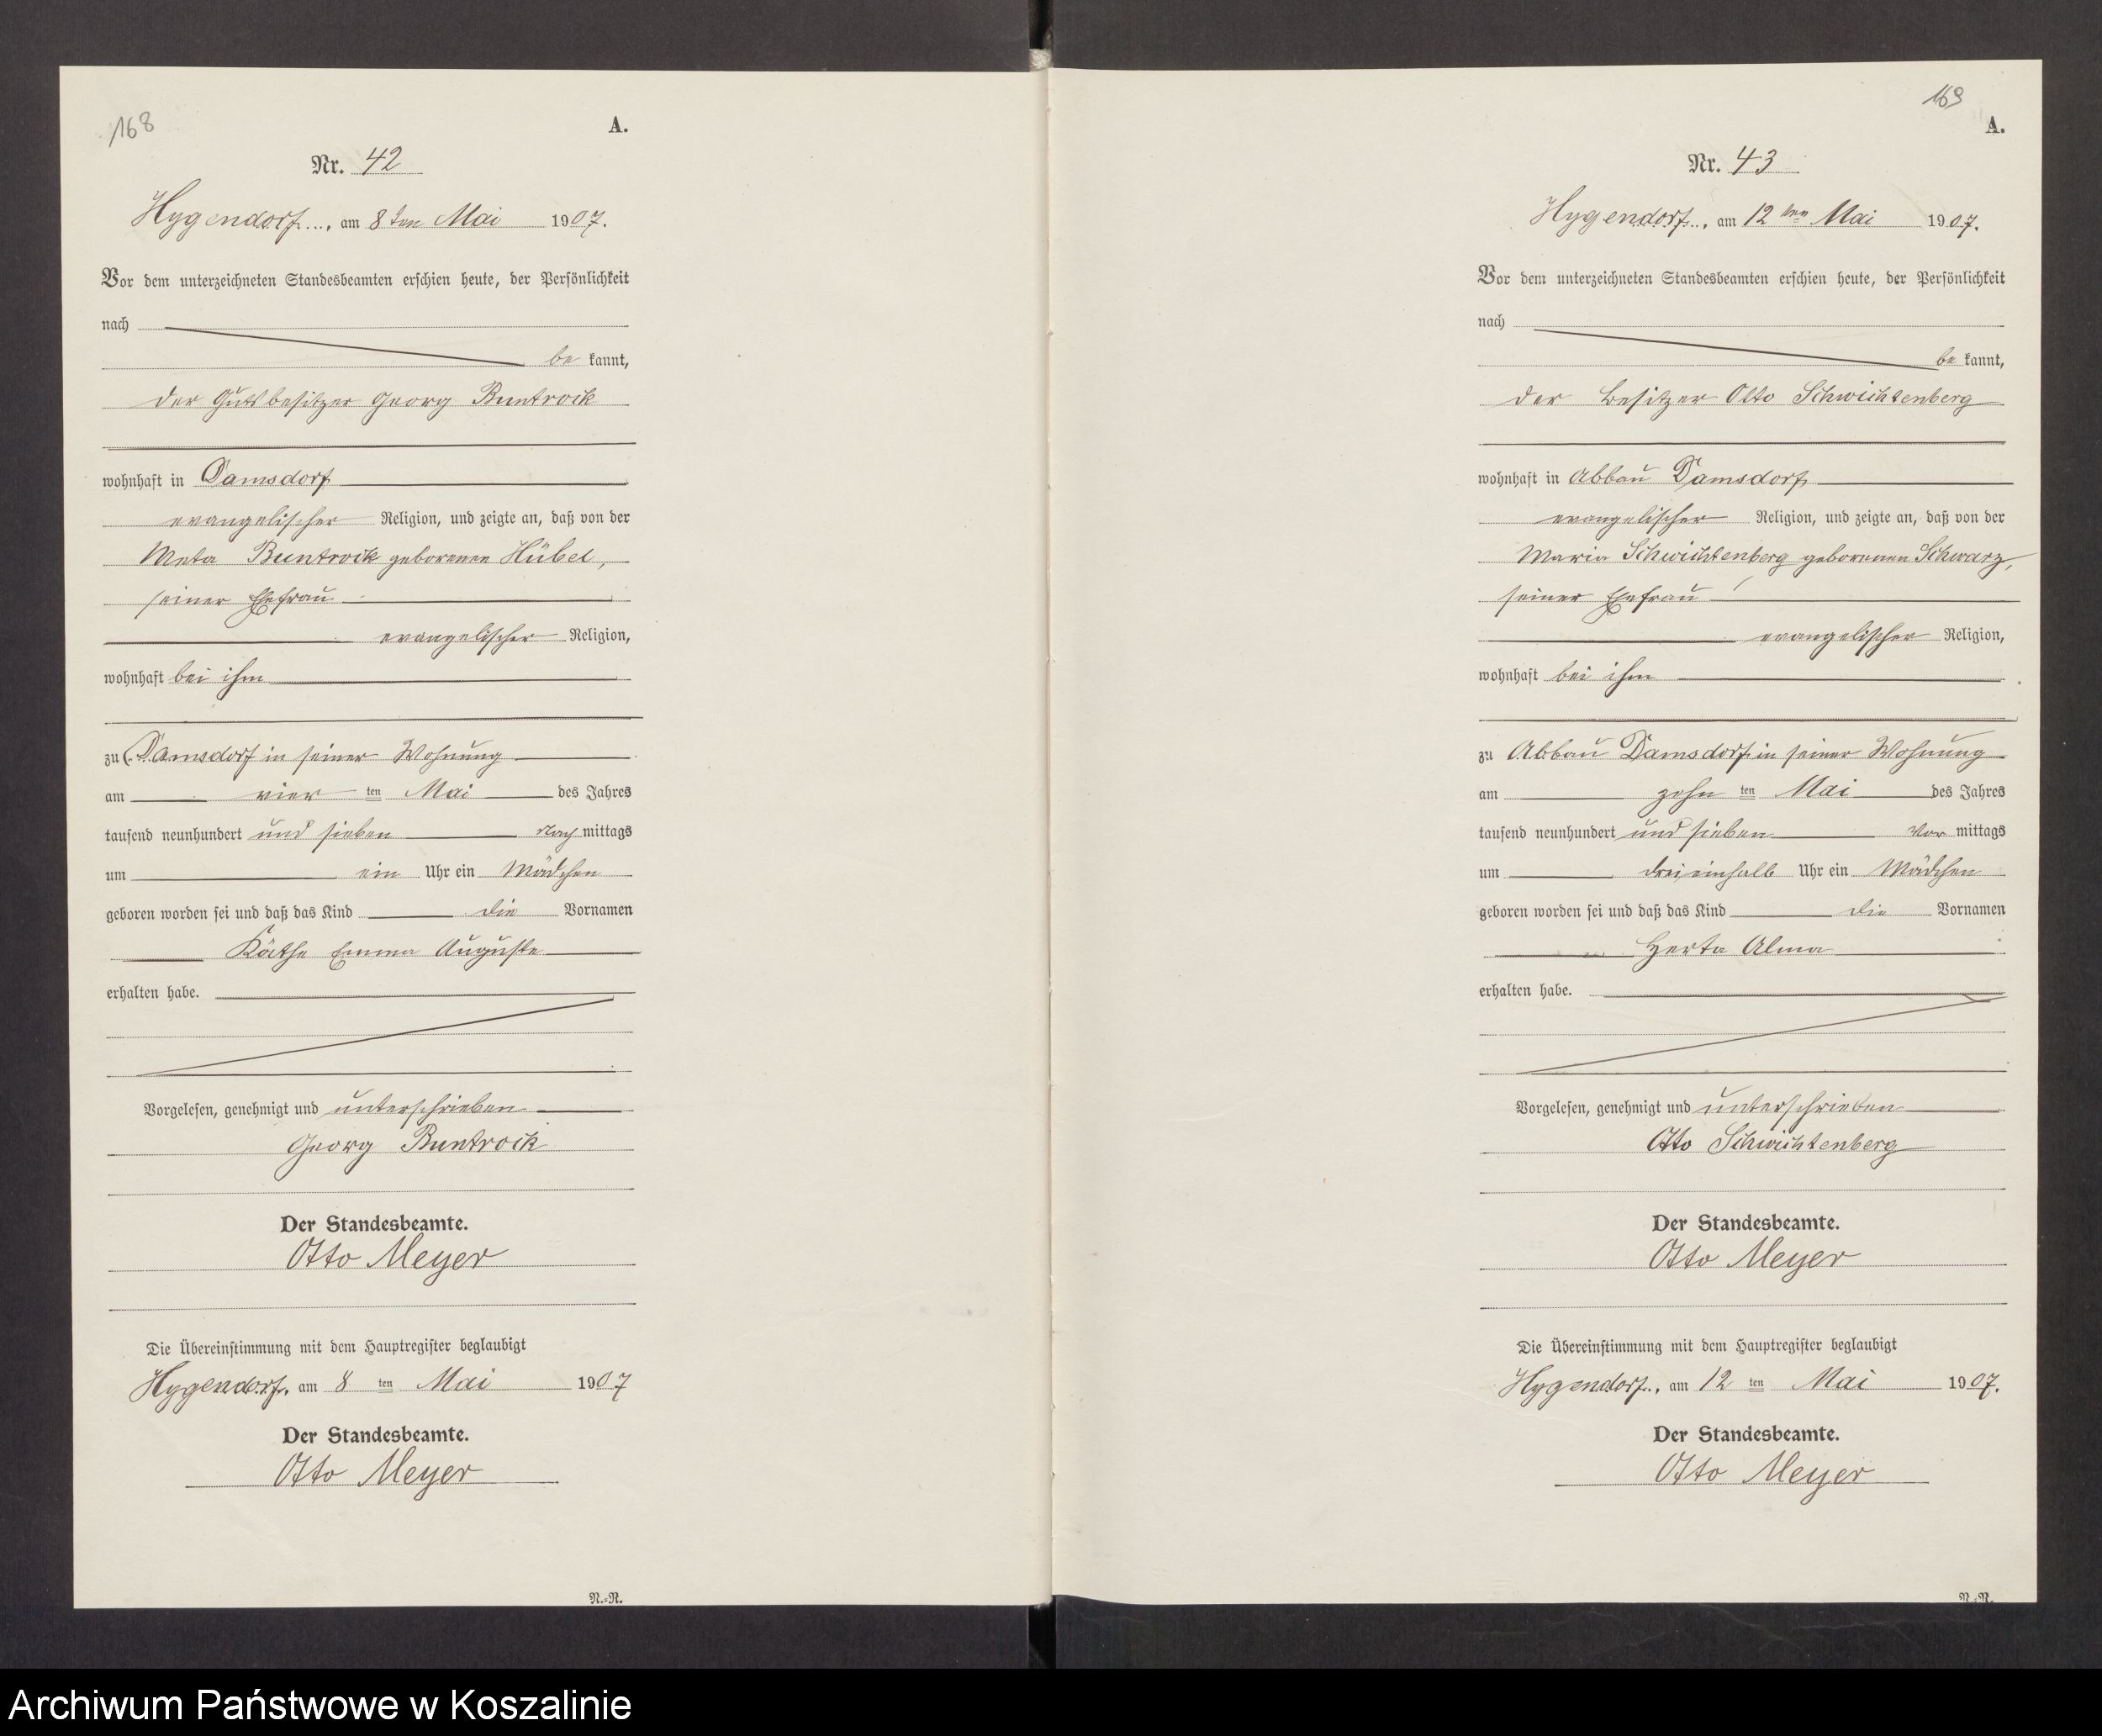 168
A.
Nr. 42
Hygendorf, am 8ten Mai 1907.
Vor dem unterzeichneten Standesbeamten erschien heute, der Persönlichkeit
nach
be kannt,
der Gutsbesitzer Georg Buntrock
wohnhaft in Damsdorf
evangelischer Religion, und zeigte an, daß von der
Meta Buntrock geborenen Hübel,
seiner Ehefrau
evangelischer Religion,
wohnhaft bei ihm
zu Damsdorf in seiner Wohnung
am vier ten Mai des Jahres
tausend neunhundert und sieben Nach mittags
um ein Uhr ein Mädchen
geboren worden sei und daß das Kind die Vornamen
Käthe Emma Auguste
erhalten habe.
Vorgelesen, genehmigt und unterschrieben
Georg Buntrock
Der Standesbeamte.
Otto Meyer
Die Übereinstimmung mit dem Hauptregister beglaubigt
Hygendorf, am 8 ten Mai 1907
Der Standesbeamte.
Otto Meyer
N.=N.
169
A.
Nr. 43
Hygendorf, am 12ten Mai 1907.
Vor dem unterzeichneten Standesbeamten erschien heute, der Persönlichkeit
nach
be kannt,
der Besitzer Otto Schwichtenberg
wohnhaft in Abbau Damsdorf
evangelischer Religion, und zeigte an, daß von der
Maria Schwichtenberg geborenen Schwarz,
seiner Ehefrau
evangelischer Religion,
wohnhaft bei ihm
zu Abbau Damsdorf in seiner Wohnung
am zehn ten Mai des Jahres
tausend neunhundert und sieben Vor mittags
um dreieinhalb Uhr ein Mädchen
geboren worden sei und daß das Kind die Vornamen
Herta Alma
erhalten habe.
Vorgelesen, genehmigt und unterschrieben
Otto Schwichtenberg
Der Standesbeamte.
Otto Meyer
Die Übereinstimmung mit dem Hauptregister beglaubigt
Hygendorf, am 12 ten Mai 1907.
Der Standesbeamte.
Otto Meyer
N.=N.
Archiwum Państwowe w Koszalinie